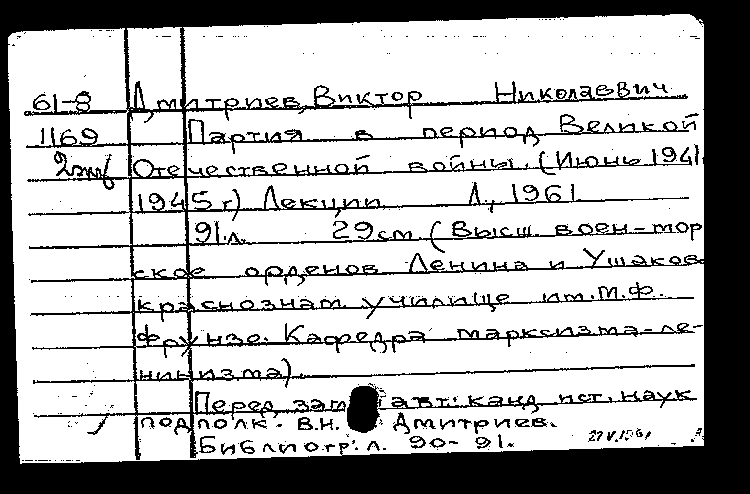 61-8 Дмитриев, Виктор Николаевич
1169 Партия в период Великой
2 экз Отечественной войны. (Июнь 1941-
1945 г.) Лекции. Л., 1961.
91 л. 29 см. (Высш. воен-мор
ское орденов Ленина и Ушаков
краснознам. училище им. М.Ф.
Фрунзе. Кафедра марксизма-ле-
нинизма).
Перед загл. авт: канд. ист. наук
подполк. В.Н. Дмитриев.
Библиогр: л. 90-91. 27.V.1961